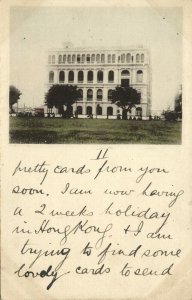 11
pretty cards from you
soon. I am now having
a 2 weeks holiday
in HongKong & I am
trying to find some
lovely cards to send